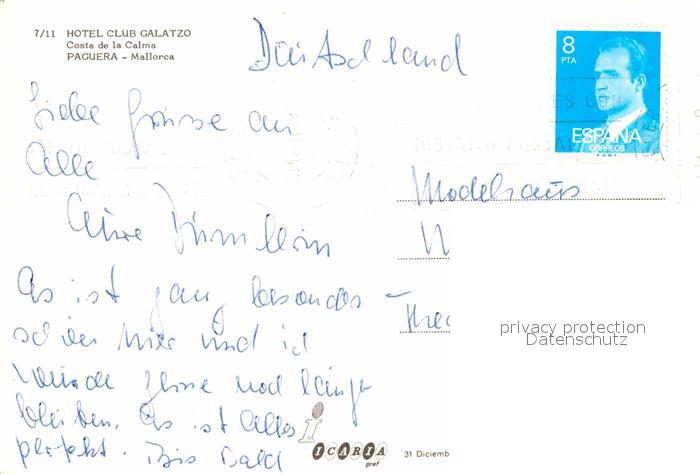 7/11 HOTEL CLUB GALATZO
Costa de la Calma
PAGUERA – Mallorca
Deutschland
8
PTA
ESPAÑA
CORREOS
F.N.M.T.
Liebe Grüsse an
Alle
Modehaus
Es ist ganz besonders
schön hier und ich
würde gerne noch länger
bleiben. Es ist alles
perfekt. Bis bald
privacy protection
Datenschutz
ICARIA
graf
31 Diciemb